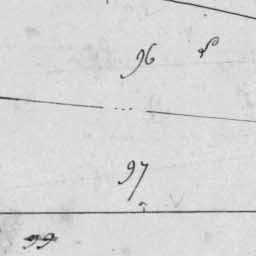 96
97
99